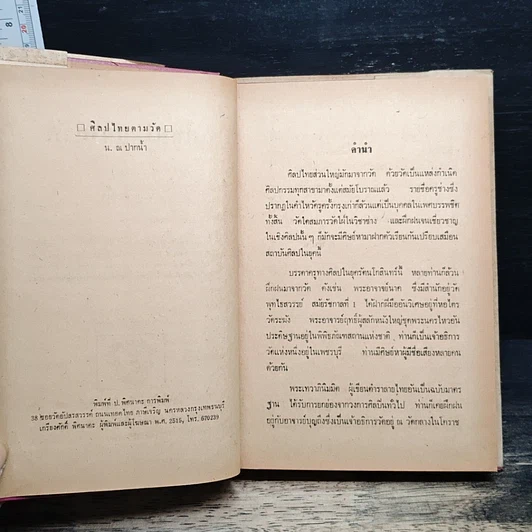 ศิลปไทยตามวัด
น. ณ ปากน้ำ
พิมพ์ที่ ป. พิศนาคะ การพิมพ์
38 ซอยวัดอัปสรสวรรค์ ถนนเทอดไทย ภาษีเจริญ นครหลวงกรุงเทพธนบุรี
เกรียงศักดิ์ พิศนาคะ ผู้พิมพ์และผู้โฆษณา พ.ศ. 2515, โทร. 670239
คำนำ
ศิลปไทยส่วนใหญ่มักมาจากวัด ด้วยวัดเป็นแหล่งกำเนิด
ศิลปกรรมทุกสาขามาตั้งแต่สมัยโบราณแล้ว รายชื่อครูช่างซึ่ง
ปรากฏในคำไหว้ครูครั้งกรุงเก่าก็ล้วนแต่เป็นบุคคลในเพศบรรพชิต
ทั้งสิ้น วัดใดสมภารวัดใฝ่ในวิชาช่าง และฝึกฝนจนเชี่ยวชาญ
ในเชิงศิลปนั้น ๆ ก็มักจะมีศิษย์หามาฝากตัวเรียนกันเปรียบเสมือน
สถาบันศิลปในยุคนี้
บรรดาครูทางศิลปในยุครัตนโกสินทร์นี้ หลายท่านก็ล้วน
ฝึกฝนมาจากวัด ดังเช่น พระอาจารย์นาค ซึ่งมีสำนักอยู่วัด
พุทไธสวรรย์ สมัยรัชกาลที่ 1 ได้ฝากฝีมืออันวิเศษอยู่ที่หอไตร
วัดระฆัง พระอาจารย์ฤทธิ์ผู้สลักหนังใหญ่ชุดพระนครไหวอัน
ประดิษฐานอยู่ในพิพิธภัณฑสถานแห่งชาติ ท่านก็เป็นเจ้าอธิการ
วัดแห่งหนึ่งอยู่ในเพชรบุรี ท่านมีศิษย์หาผู้มีชื่อเสียงหลายคน
ด้วยกัน
พระเทวาภินิมมิต ผู้เขียนตำราลายไทยอันเป็นฉบับมาตร
ฐาน ได้รับการยกย่องจากวงการศิลปินทั่วไป ท่านก็เคยฝึกฝน
อยู่กับอาจารย์บุญถึงซึ่งเป็นเจ้าอธิการวัดอยู่ ณ วัดกลางในโคราช